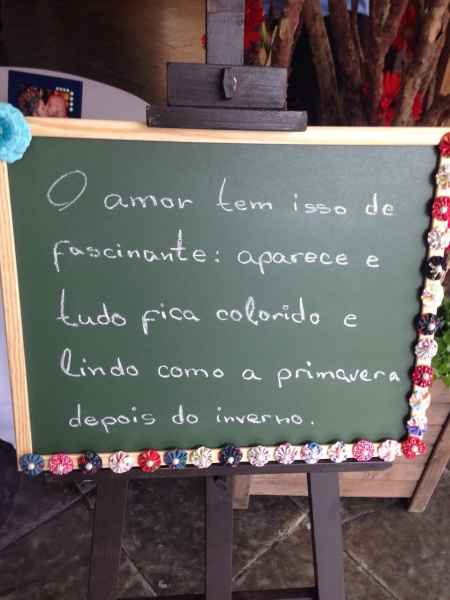 O amor tem isso de
fascinante: aparece e
tudo fica colorido e
lindo como a primavera
depois do inverno.